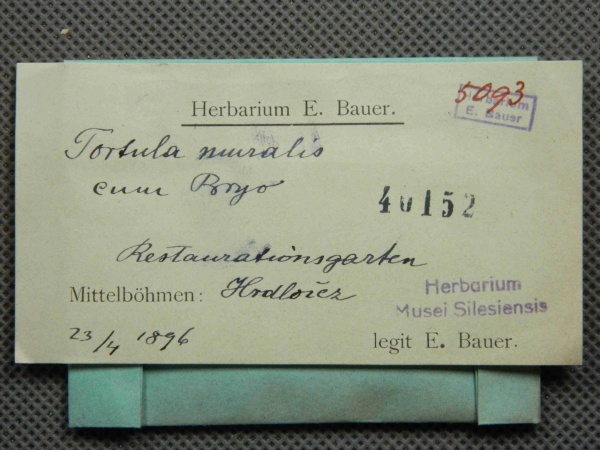 5093
Herbarium
E. Bauer
Herbarium E. Bauer.
Tortula muralis
cum Bryo
40152
Restaurationsgarten
Mittelböhmen: Hrdlořez
Herbarium
Musei Silesiensis
23/4 1896
legit E. Bauer.